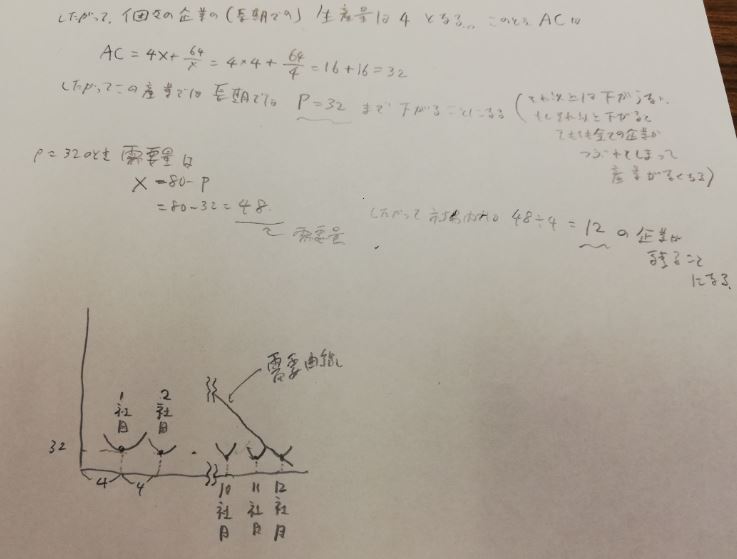 したがって、個々の企業の(長期での)生産量は4となる。このときACは
AC = 4x + 64/x = 4×4 + 64/4 = 16+16 = 32
したがってこの産業では長期では P=32 まで下がることになる
(それ以上は下がらない。
もしそれ以上下がると
全ての企業が
つぶれてしまって
産業がなくなる)
P=32のとき需要量は
X=80-P
=80-32=48
需要量
したがって市場内の 48÷4=12 の企業が
残ること
になる.
需要曲線
1社目
2社目
32
4
4
10社目
11社目
12社目